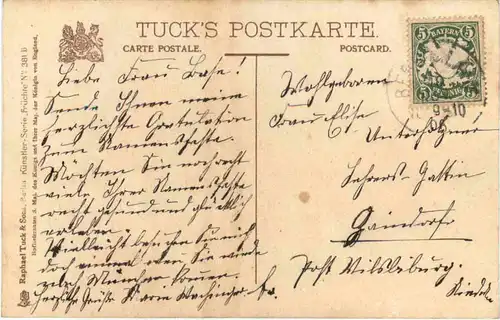 TUCK'S POSTKARTE.
CARTE POSTALE.
POSTCARD.
Raphael Tuck & Sons, Künstler-Serie „Früchte" Nº 381 D
Hoflieferanten S. Maj. des Königs und Ihrer Maj. der Königin von England.
Liebe Frau Base!
Sende Ihnen meine
herzlichste Gratulation
zum Namensfeste.
Möchten Sie noch recht
viele Ihrer Namensfeste
recht gesund und glücklich
erleben.
Vielleicht besuchen Sie mich
doch einmal wenn Sie wieder
nach München kommen.
herzliche Grüße Marie
Wohlgeboren
Frau Elise
Lehrers-Gattin
Gaindorf
Post Vilsbiburg.
BAYERN
5
5
PFENNIG
9-10